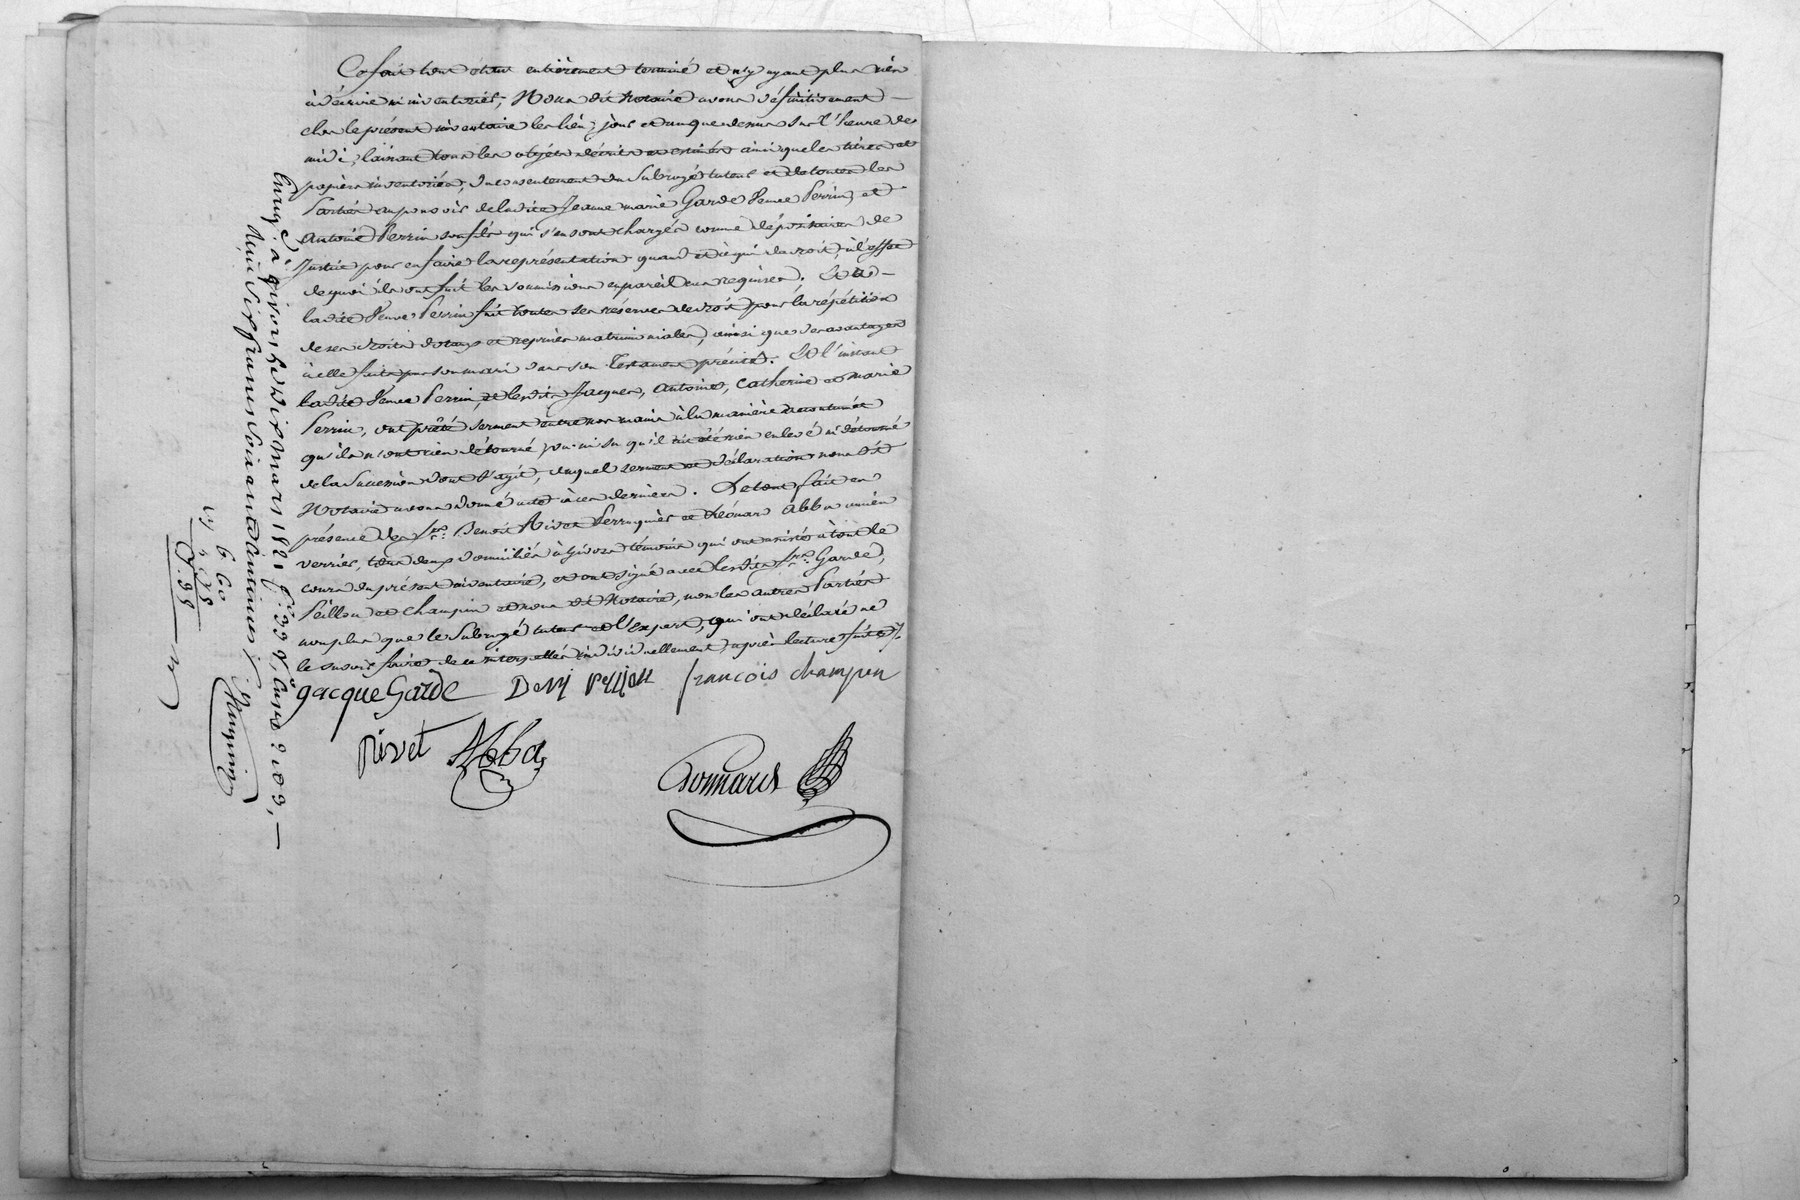 Ce fait tout etant entièrement terminé et n'y ayant plus rien
à décrire ni inventorier, Nous dit Notaire avons définitivement —
clos le présent inventaire les lieu, jour et an que dessus sur l'heure de
midi, laissant tous les objets décrits et estimés ainsi que les titres et
papiers inventoriés, du consentement du Subrogé tuteur et de toutes les
Parties au pouvoir de ladite Jeanne marie Garde Veuve Perrin, et
Antoine Perrin son fils qui s'en sont chargés comme dépositaires de
Justice pour en faire la représentation quand et à qui de droit, à l'effet
de quoi ils ont fait les soumissions en pareil cas requises. Et —
ladite Veuve Perrin fait toutes ses réserves de droit pour la répétition
de ses droits dotaux et reprises matrimoniales, ainsi que des avantages
à elle faits par son mari dans son Testament précité. Et l'instant
ladite Veuve Perrin, et lesdits Jacques, Antoine, Catherine et marie
Perrin, ont prêté serment entre nos mains à la manière accoutumée
qu'ils n'ont rien détourné, vu ni su qu'il ait été rien enlevé ni détourné
de la Succession dont s'agit, duquel serment et déclaration nous dt
Notaire avons donné acte à ces derniers. Le tout fait en
présence des Srs. Benoit Rivet Perruquier et Léonard Abba ancien
verrier, tous deux domiciliés à Givors témoins qui ont assisté à tout le
cours du présent inventaire, et ont signé avec lesdits Srs. Garde,
Peillon et Champin et nous dt Notaire, non les autres Parties
non plus que le Subrogé tuteur et l'Expert, qui ont déclaré ne
le savoir faire de ce interpellés individuellement, après lecture faite.
Jacque Garde Deni peyjon françois champen
Rivet Abba
Bonnard
Enreg.é à givors le dix mars 1821 f.° 33 V.° Cases 2 et 3, —
Reçu six francs soixante centimes
6 60